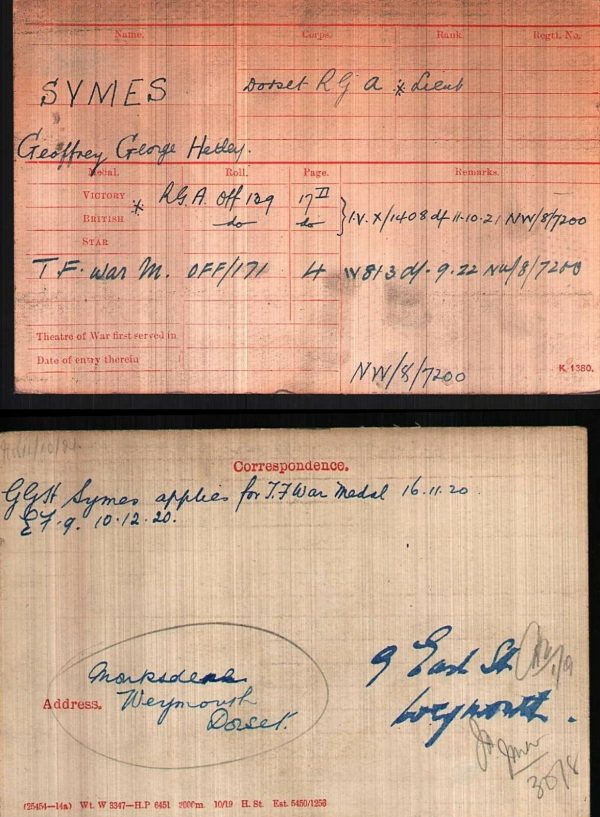 Name. Corps. Rank. Regtl. No.
SYMES Dorset R G A * Lieut
Geoffrey George
Medal. Roll. Page. Remarks.
VICTORY * R.G.A. Off 129 17 II
BRITISH do do } I.V. X/1408 df 11-10-21 NW/8/7200
STAR
T.F. War M. OFF/171 4 W813 df. 9.22 NW/8/7200
Theatre of War first served in
Date of entry therein
NW/8/7200 K. 1380.
Correspondence.
GGH Symes applies for T.F War Medal 16.11.20
EF.9. 10.12.20.
9 East St
Address. Weymouth
Weymouth.
Dorset.
30/8
(25454—14a) Wt. W 3347—H.P 6451 2000m. 10/19 H. St. Est. 5450/1256